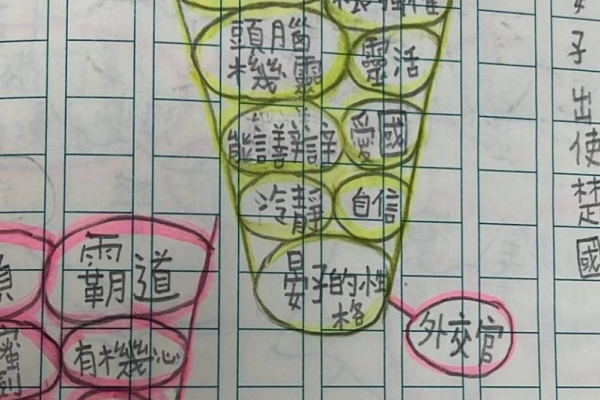 子出使楚國
頭腦機靈
靈活
能言善辯
愛國
冷靜
自信
晏子的性格
外交官
霸道
有機心